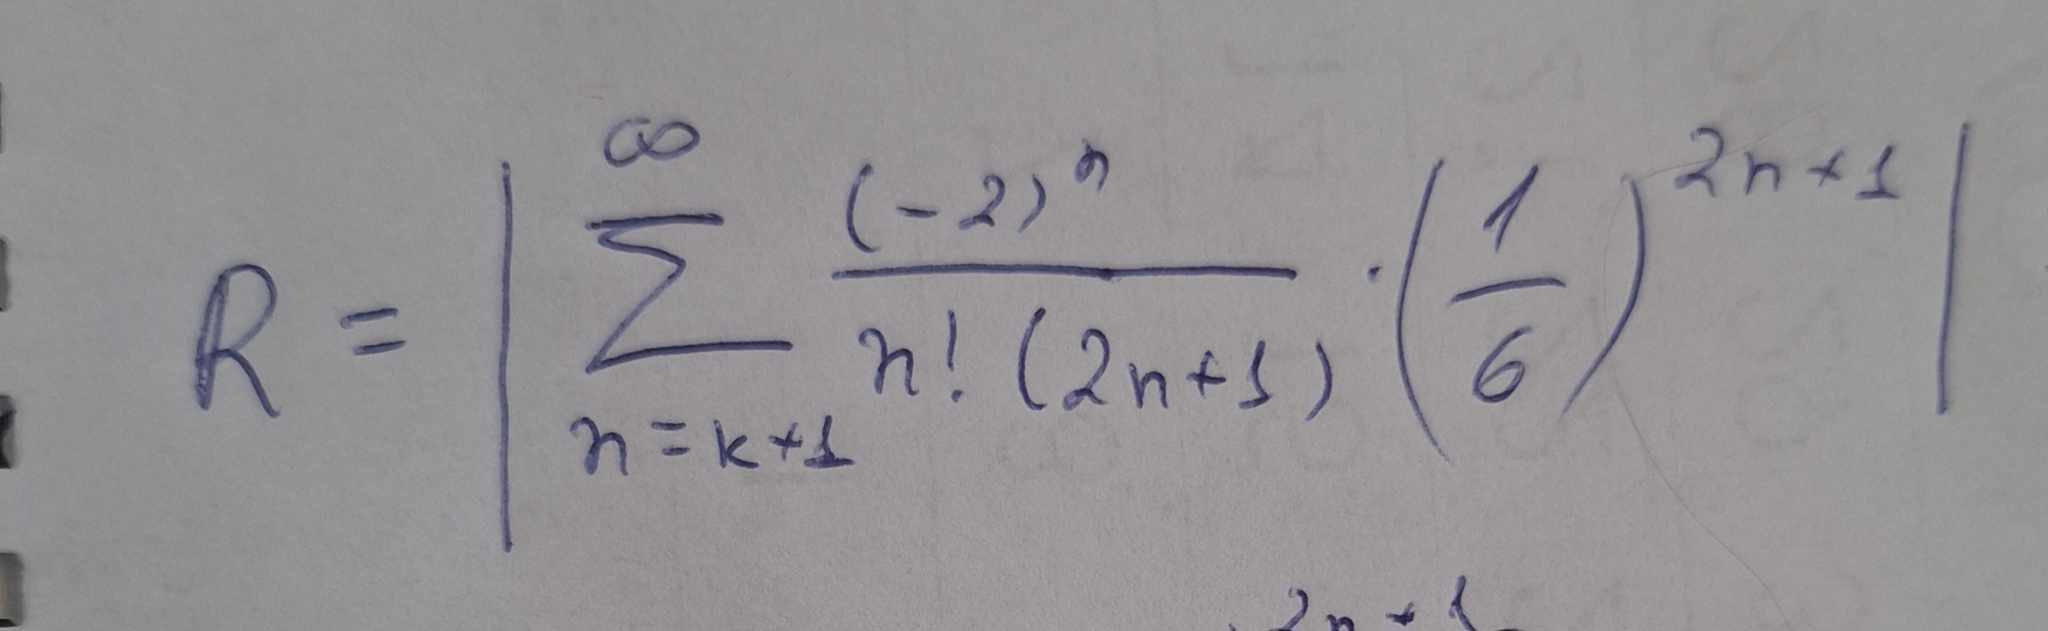 R = | ∞ ∑ n=k+1 (-2)^n / n! (2n+1) · (1/6)^2n+1 |
2n+1